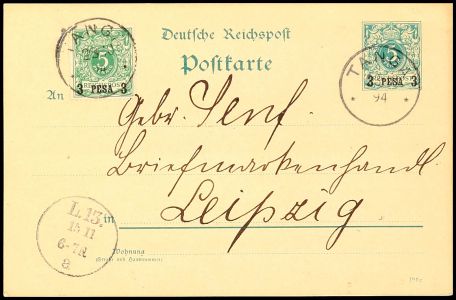 Deutsche Reichspost
Postkarte
TANGA
5
3 PESA 3
TANGA
94
5
3 PESA 3
An
Gebr. Senf.
Briefmarkenhandl.
in Leipzig
L. 13.
15 11
6-7N
a
Wohnung
(Straße und Hausnummer)